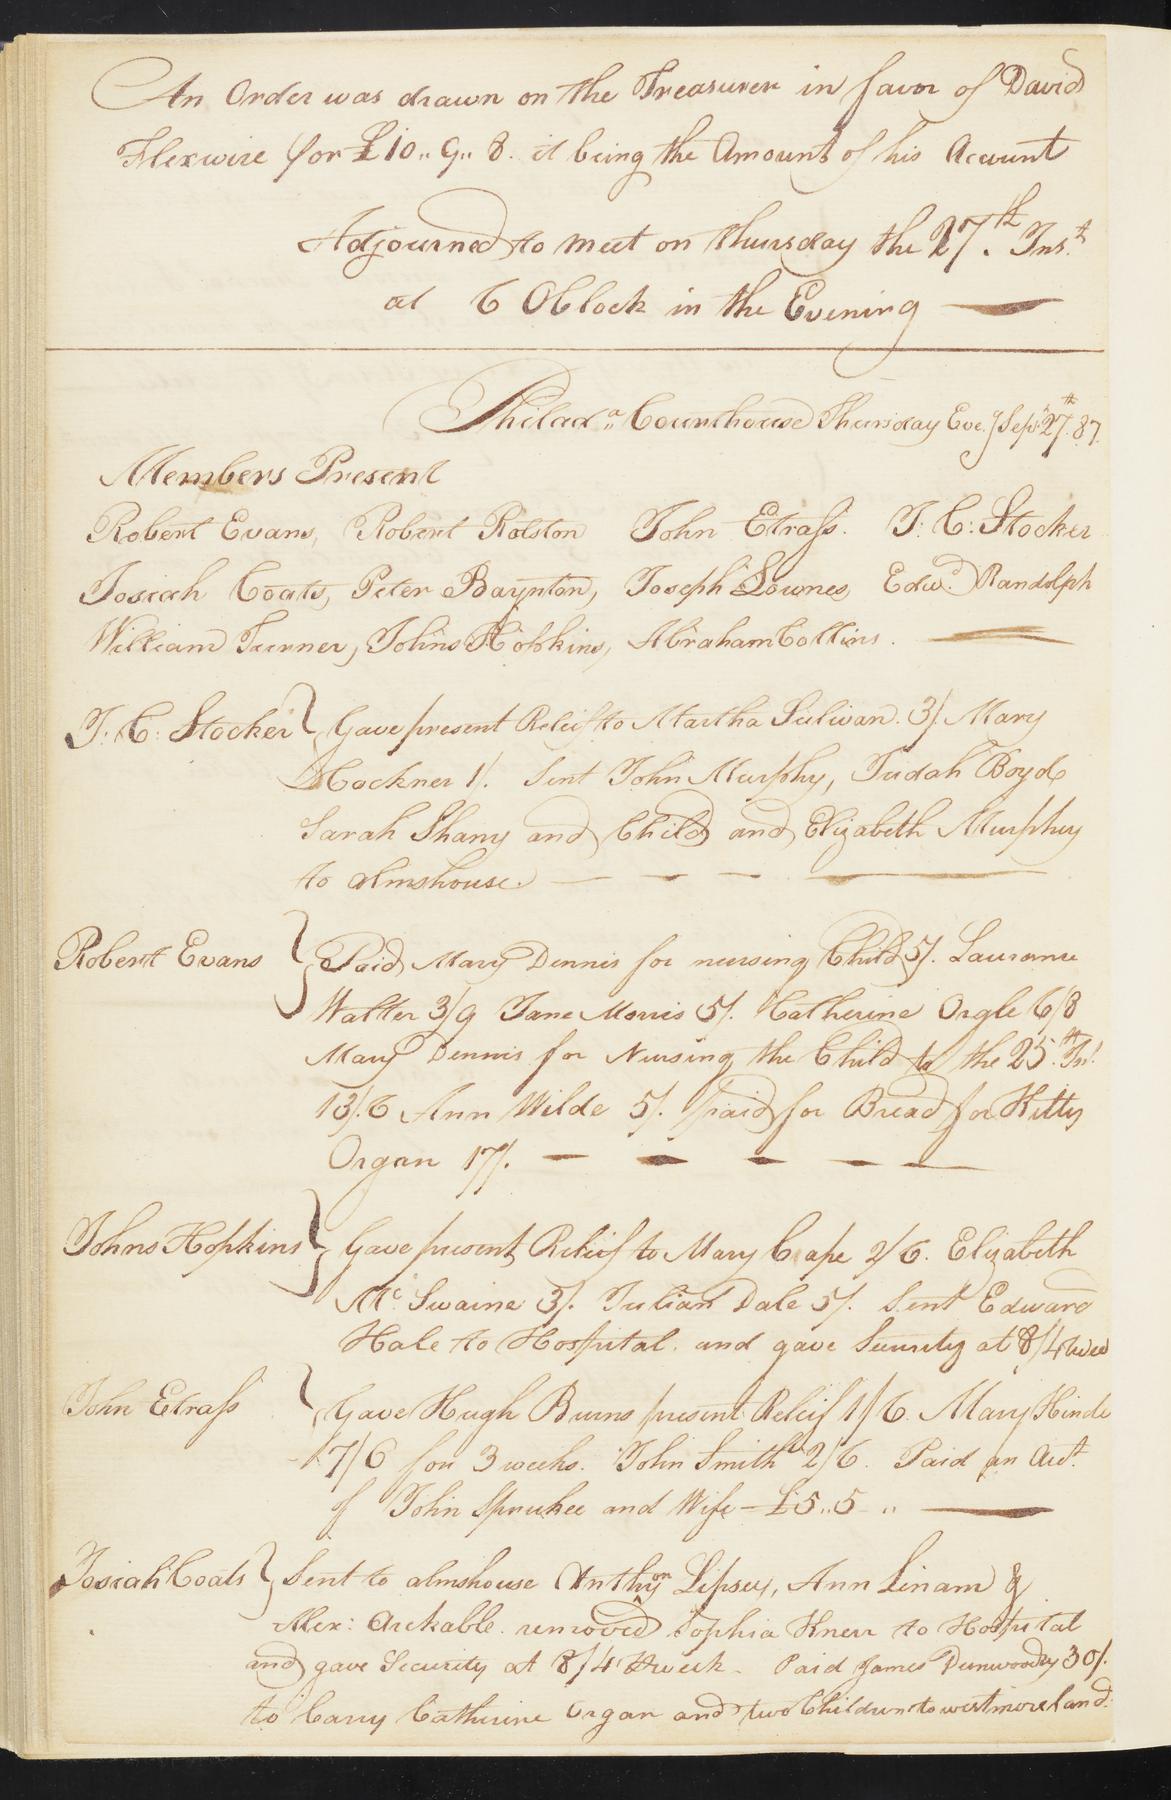 An Order was drawn on the Treasurer in favor of David
Flexwire for £10.. 9.. 8. it being the Amount of his Account
Adjourned to meet on thursday the 27th. Inst.
at 6 OClock in the Evening
Philada.. Courthouse Thursday Eveg Sepr. 27th. 87.
Members Present
Robert Evans, Robert Rolston John Elrass. J: C: Stocker
Josiah Coats, Peter Baynton, Joseph Lownes, Edwd. Randolph
William Turner, Johns Hopkins, Abraham Collins.
J. C. Stocker Gave present Releif to Martha Sulivan. 3/. Mary
Hockner 1/. Sent John Murphy, Judah Boyd,
Sarah Shany and Child and Elizabeth Murphy
to almshouse.
Robert Evans Paid Mary Dennis for nursing Child 5/. Laurance
Walter 3/9 Jane Morris 5/. Catherine Orgle 6/8
Mary Dennis for Nursing the Child to the 25th. Inst.
13/.6 Ann Wilde 5/. paid for Bread for Kitty
Organ 17/.
Johns Hopkins Gave present Relief to Mary Crape 2/6. Elizabeth
Mc. Swaine 3/. Julian Dale 5/. Sent Edward
Hale to Hospital. and gave Security at 8/4
John Elrass Gave Hugh Burns present Releif 1/6. Mary Hinde
17/6 for 3 weeks. John Smith 2/6. Paid an Acct.
of John Spruhee and Wife - £5..5 ..
Josiah Coats Sent to almshouse Anthony Lipsey, Ann Linam &
Alex: Arckable. removed Sophia Knerr to Hospital
and gave Security at 8/4 week. Paid James Dunwoody 30/.
to Carry Catherine Organ and two Children to westmoreland.